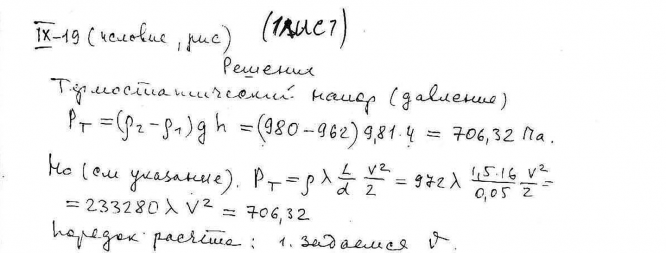 IX-19 (условие, рис) (1 лист)
Решения
Термостатический напор (давление)
P_T = (ρ₂ - ρ₁) g h = (980 - 962) 9,81·4 = 706,32 Па.
Но (см указание). P_T = ρ λ L/d V²/2 = 972 λ 1,5·16/0,05 V²/2 =
= 233280 λ V² = 706,32
Порядок расчёта: 1. Задаемся ϑ.